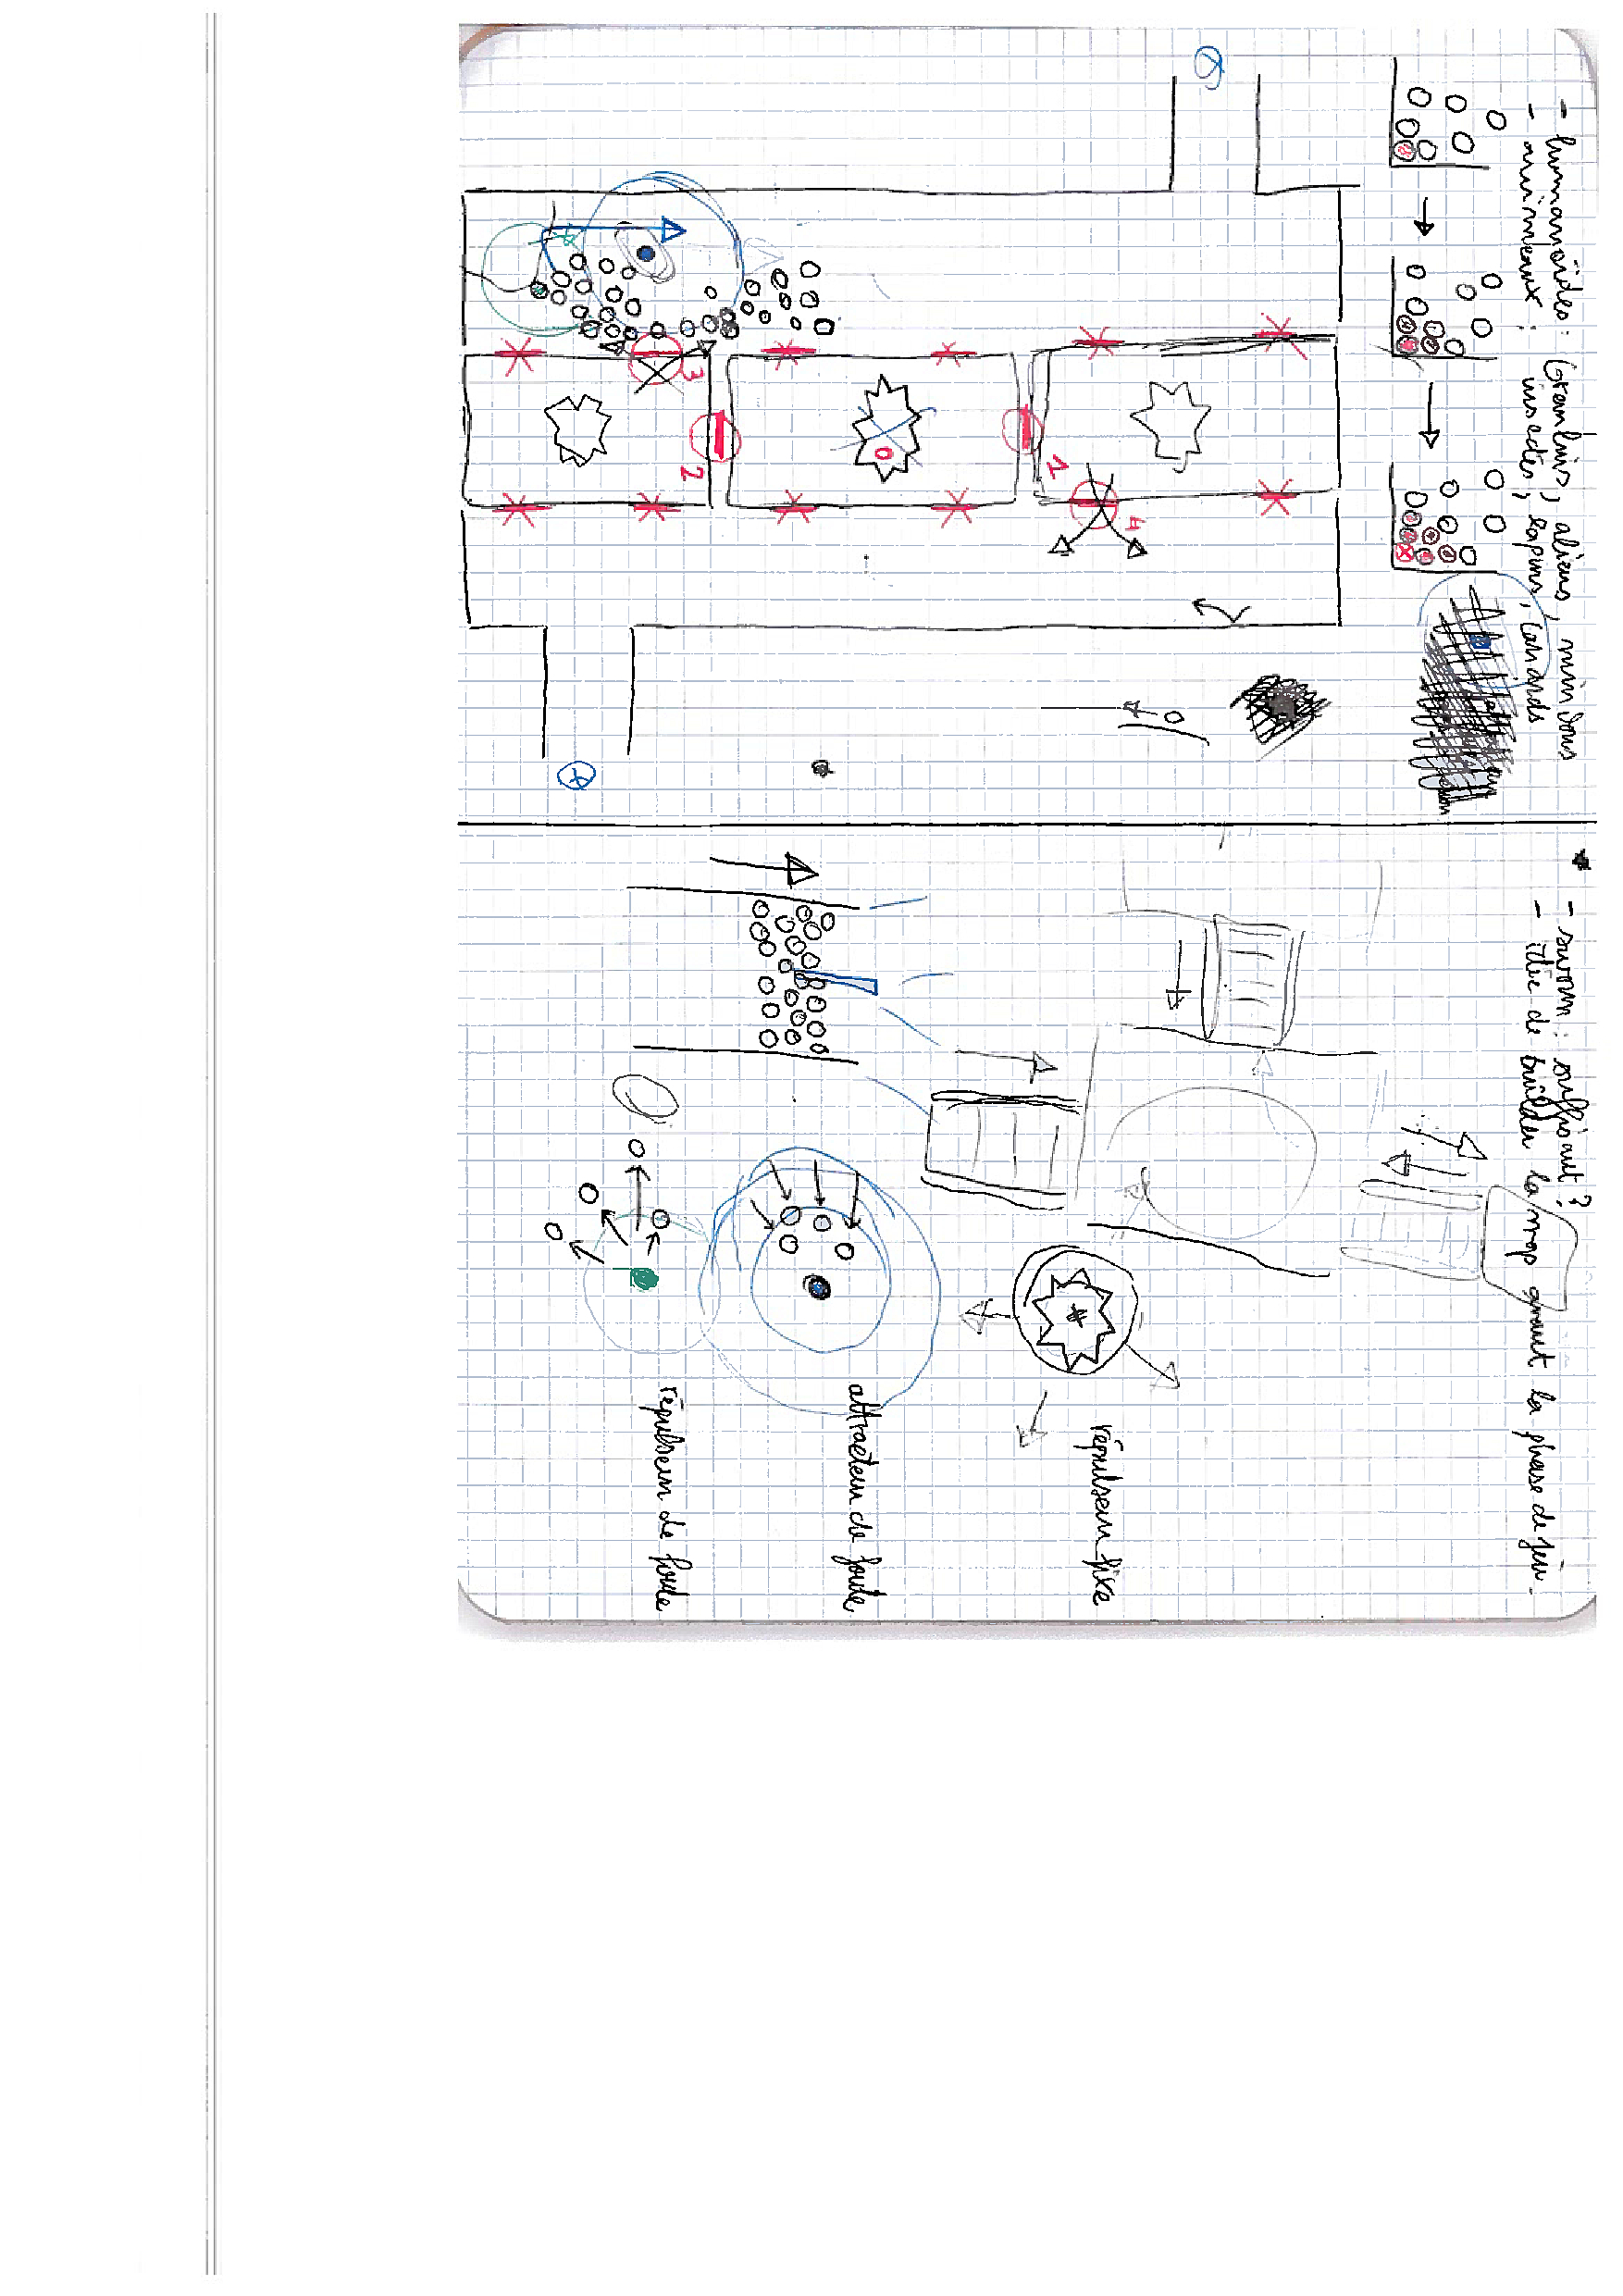 - hummanoïdes : Gremlins, aliens, minions
- animeaux : insectes, lapins, canards
3
2
0
1
4
- suffisant ?
- idée de builder la map avant la phase de jeu.
répulseur fixe
attracteur de foule
répulseur de foule